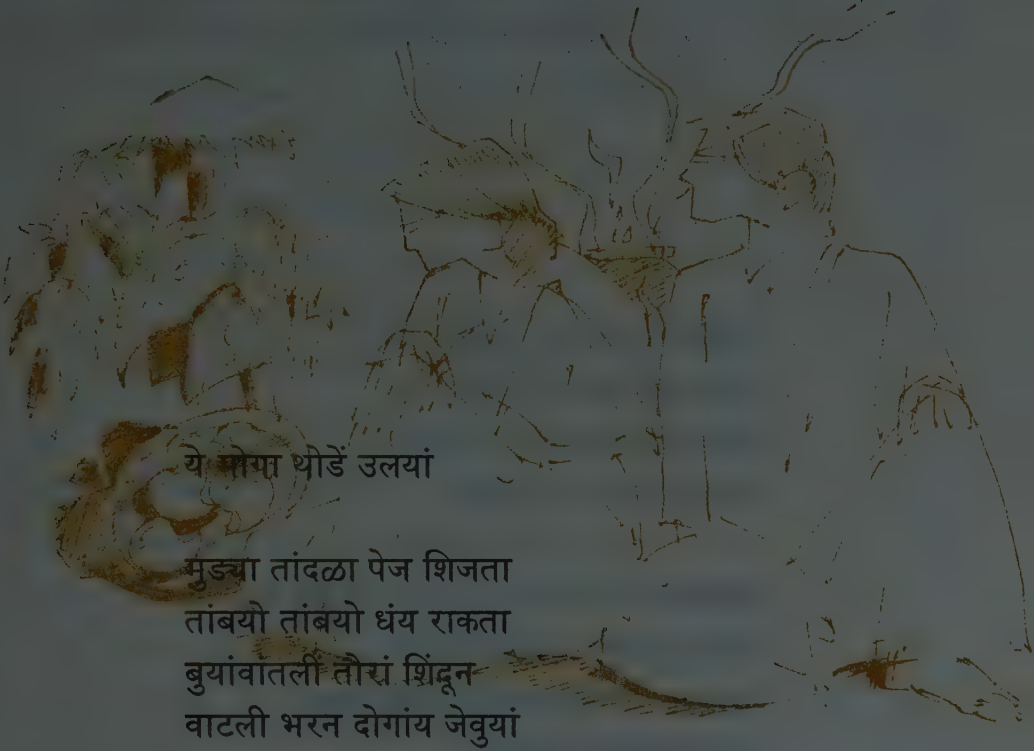 ये मोगा थोडें उलयां
मुड्या तांदळा पेज शिजता
तांबयो तांबयो धंय राकता
बुयांवांतलीं तौरां शिंदून
वाटली भरन दोगांय जेवुयां